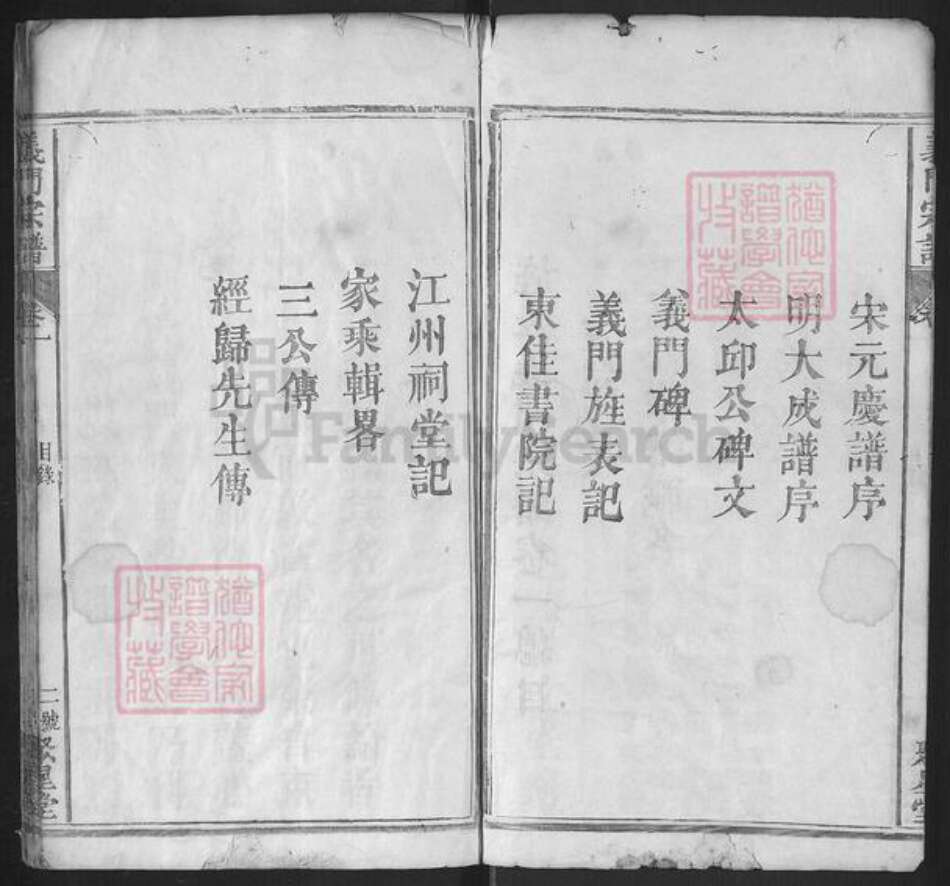 宋元慶譜序
明大成譜序
太邱公碑文
義門碑
義門旌表記
東佳書院記
江州祠堂記
家乘輯畧
三公傳
經歸先生傳
義門宗譜
卷一
目錄
二號
聚星堂
FamilySearch